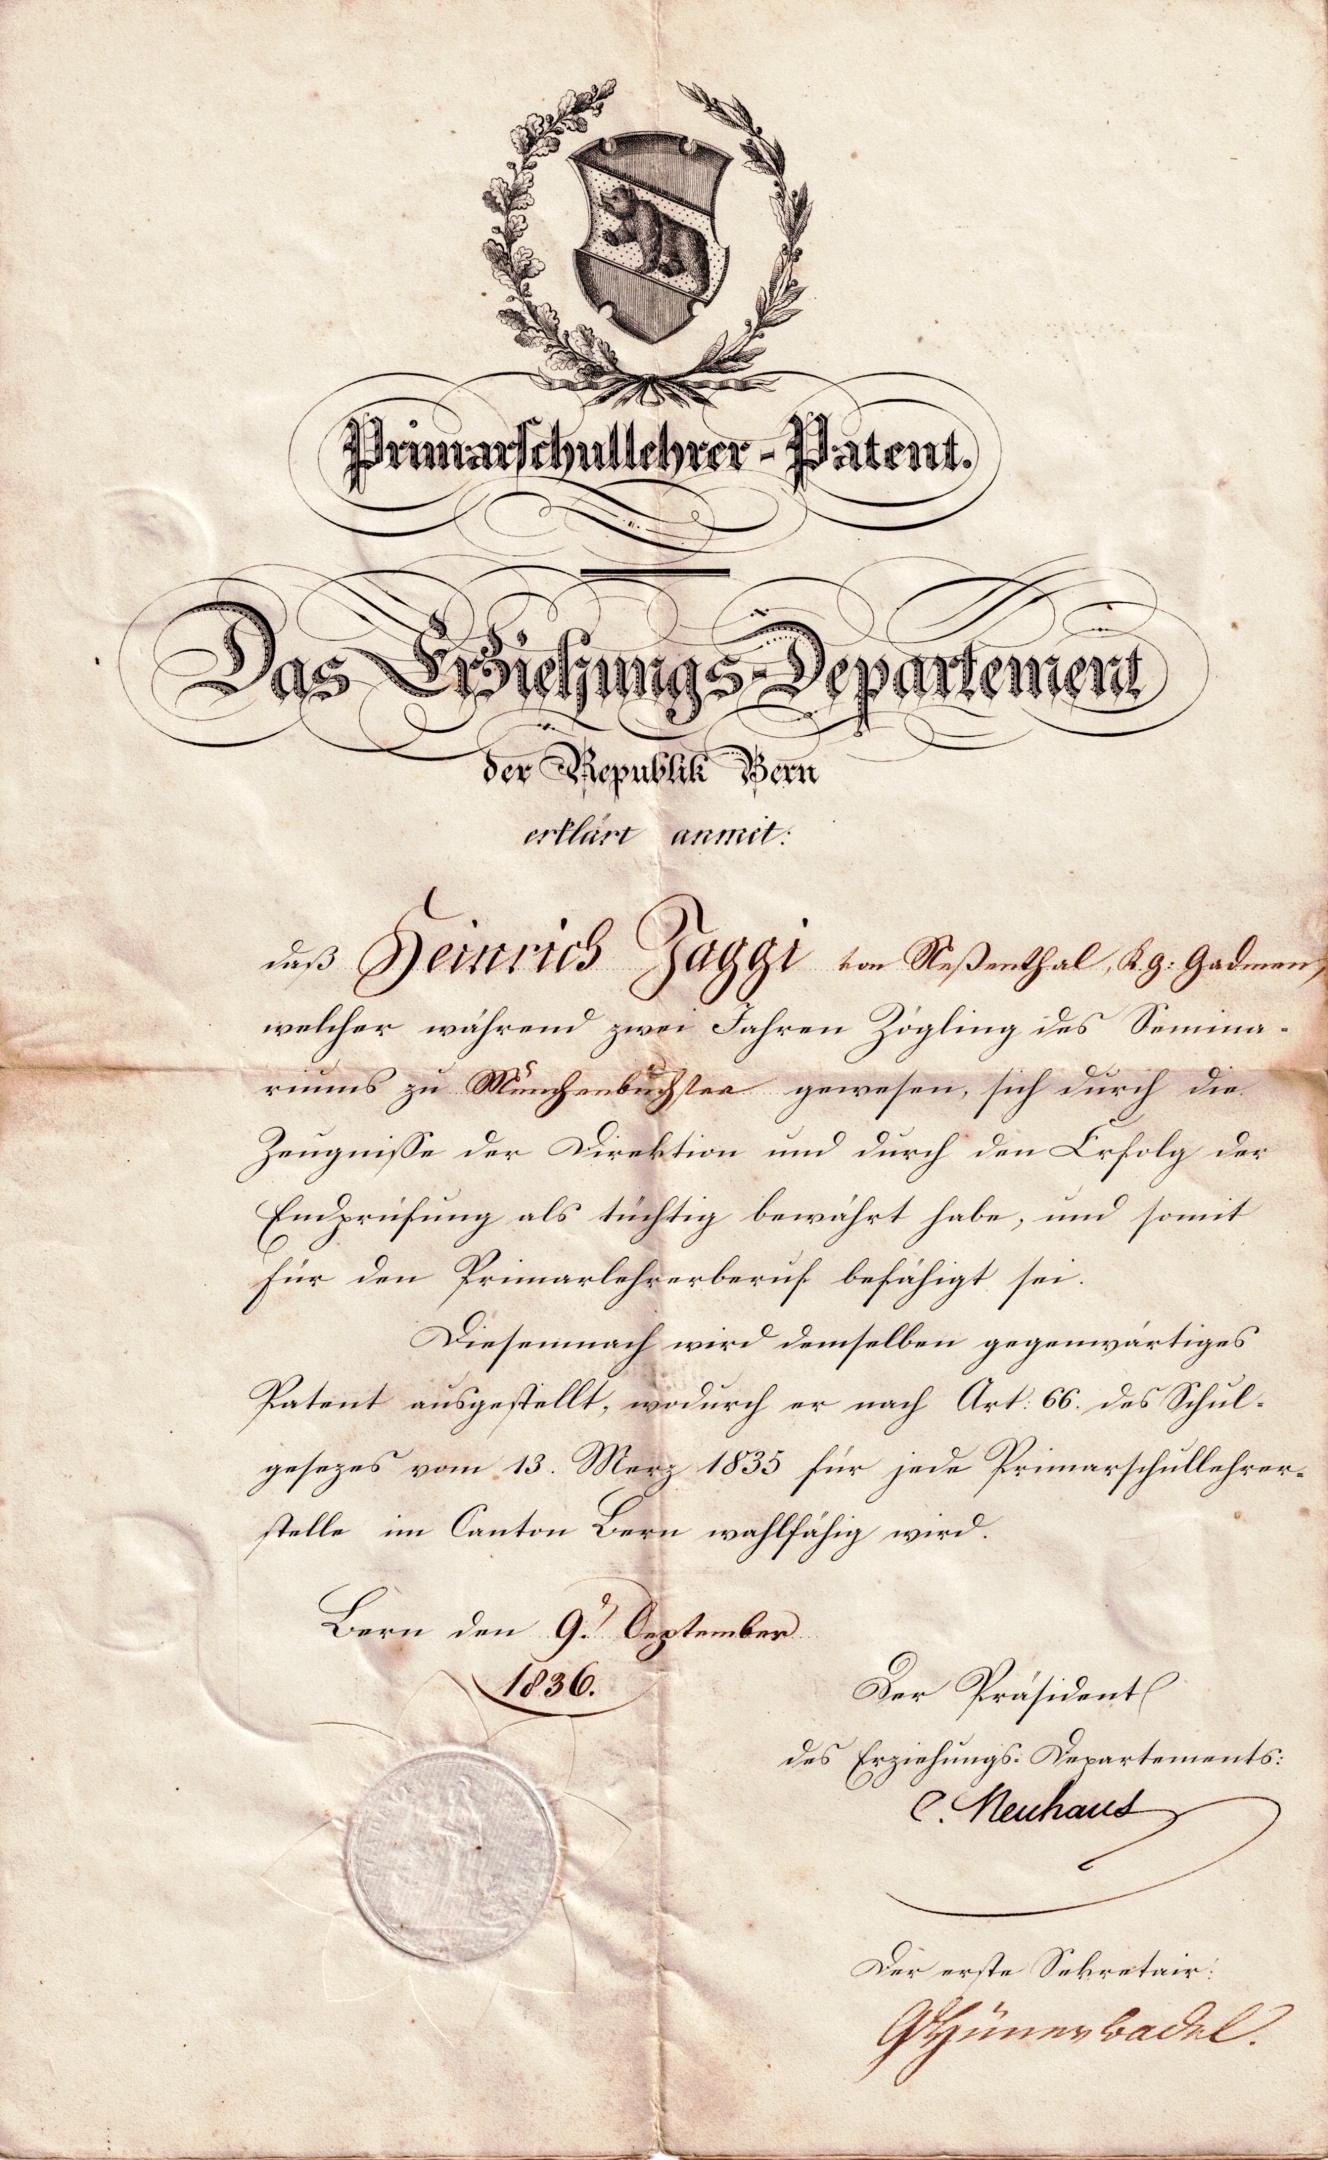 Primarschullehrer-Patent.
Das Erziehungs-Departement
der Republik Bern
erklärt anmit:
daß Heinrich Jaggi von Neßenthal, K.g: Gadmen,
welcher während zwei Jahren Zögling des Semina-
riums zu Münchenbuchsee gewesen, sich durch die
Zeugnisse der Direktion und durch den Erfolg der
Endprüfung als tüchtig bewährt habe, und somit
für den Primarlehrerberuf befähigt sei.
Diesemnach wird demselben gegenwärtiges
Patent ausgestellt, wodurch er nach Art: 66. des Schul-
gesezes vom 13. Merz 1835 für jede Primarschullehrer-
stelle im Canton Bern wahlfähig wird.
Bern den 9. September
1836.
Der Präsident
des Erziehungs-Departements:
C. Neuhaus
Der erste Sekretair:
Hünerwadel.